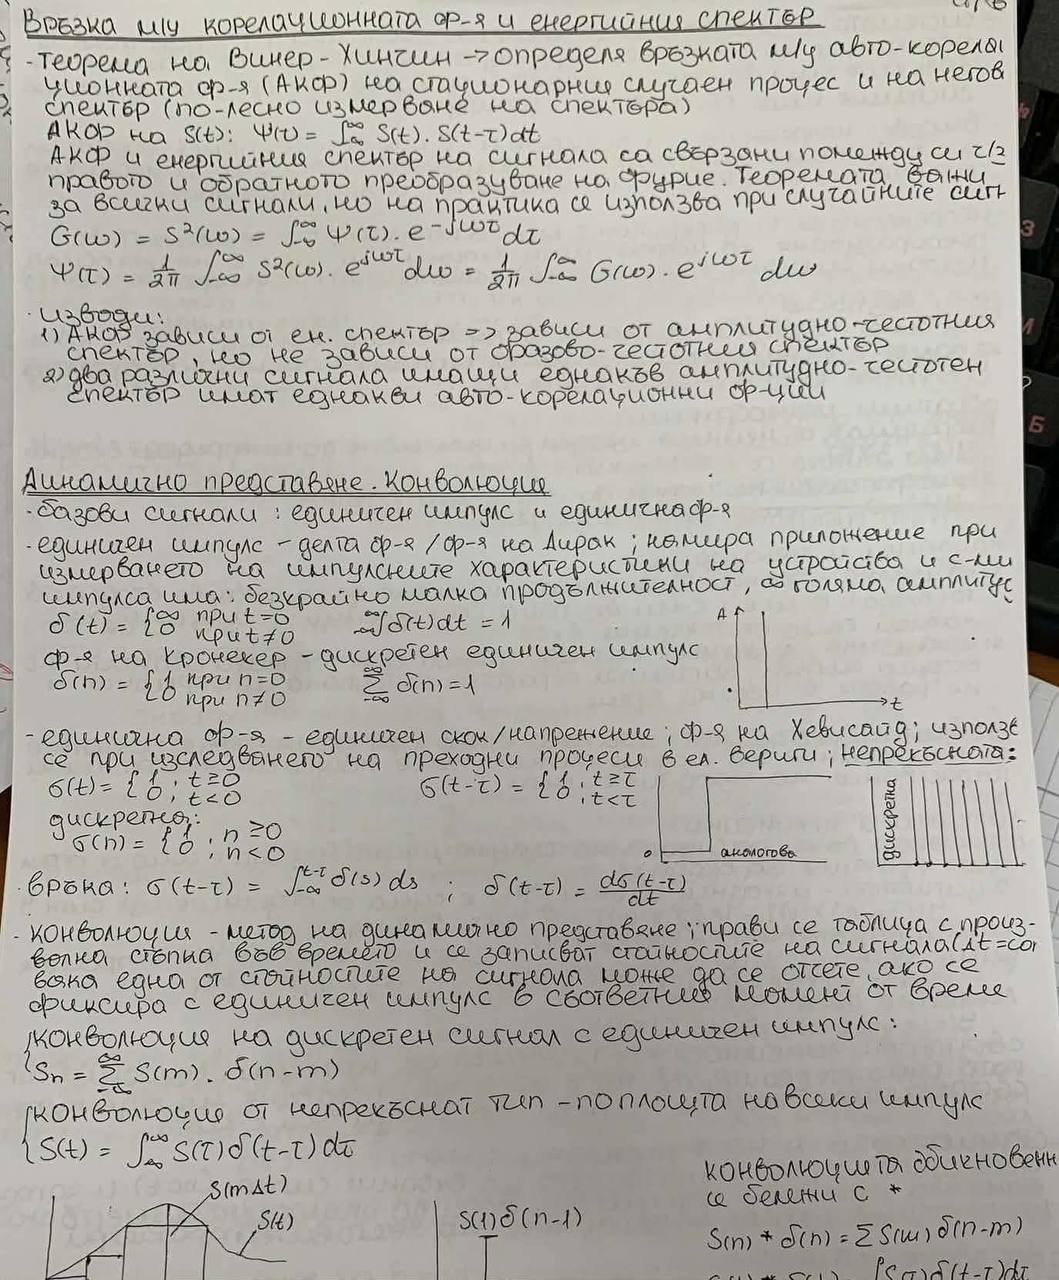 Връзка м/у корелационната ф-я и енергийния спектър
- Теорема на Винер - Хинчин → определя връзката м/у авто-корела
ционната ф-я (АКФ) на стационарния случаен процес и на негов
спектър (по-лесно измерване на спектъра)
АКФ на S(t): Ψ(τ) = ∫_{-∞}^{∞} S(t). S(t-τ)dt
АКФ и енергийния спектър на сигнала са свързани помежду си ч/з
правото и обратното преобразуване на Фурие. Теоремата важи
за всички сигнали, но на практика се използва при случайните сигн
G(ω) = S²(ω) = ∫_{-∞}^{∞} Ψ(τ). e^{-jωτ} dτ
Ψ(τ) = 1/2π ∫_{-∞}^{∞} S²(ω). e^{jωτ} dω = 1/2π ∫_{-∞}^{∞} G(ω). e^{jωτ} dω
· изводи:
1) АКФ зависи от ен. спектър => зависи от амплитудно-честотния
спектър, но не зависи от фазово-честотния спектър
2) два различни сигнала имащи еднакъв амплитудно-честотен
спектър имат еднакви авто-корелационни ф-ции
Динамично представяне. Конволюция
- базови сигнали: единичен импулс и единична ф-я
- единичен импулс - делта ф-я / ф-я на Дирак; намира приложение при
измерването на импулсните характеристики на устройства и с-ми
импулса има: безкрайно малка продължителност, ∞ голяма амплитуд
δ(t) = {∞ при t=0
0 при t≠0
∫_{-∞}^{∞} δ(t)dt = 1
A
t
ф-я на Кронекер - дискретен единичен импулс
δ(n) = {1 при n=0
0 при n≠0
∑_{-∞}^{∞} δ(n)=1
- единична ф-я - единичен скок/напрежение; ф-я на Хевисайд; използв
се при изследването на преходни процеси в ел. вериги; непрекъсната:
σ(t) = {1 ; t≥0
0 ; t<0
σ(t-τ) = {1 ; t≥τ
0 ; t<τ
дискретна:
σ(n) = {1 ; n≥0
0 ; n<0
0
аналогова
дискретна
· връзка: σ(t-τ) = ∫_{-∞}^{t-τ} δ(s) ds ; δ(t-τ) = dσ(t-τ)/dt
- конволюция - метод на динамично представяне; прави се таблица с произ-
волна стъпка във времето и се записват стойностите на сигнала (Δt=con
всяка една от стойностите на сигнала може да се отчете, ако се
фиксира с единичен импулс в съответния момент от време
конволюция на дискретен сигнал с единичен импулс:
Sn = ∑_{-∞}^{∞} S(m). δ(n-m)
конволюция от непрекъснат тип - по площта на всеки импулс
S(t) = ∫_{-∞}^{∞} S(τ)δ(t-τ)dτ
S(mΔt)
S(t)
S(1)δ(n-1)
конволюцията обикновенн
се бележи с *
S(n) * δ(n) = ∑ S(m)δ(n-m)
∫S(τ)δ(t-τ)dτ